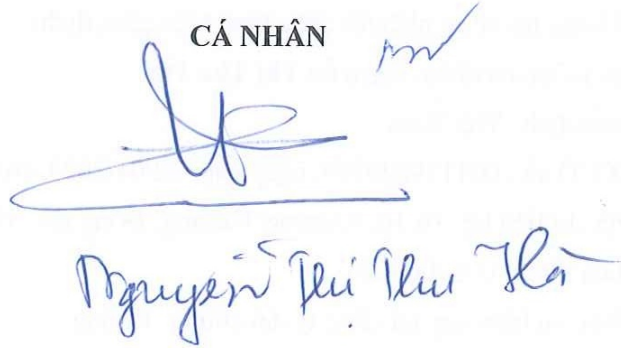 CÁ NHÂN
Nguyễn Thị Thu Hà